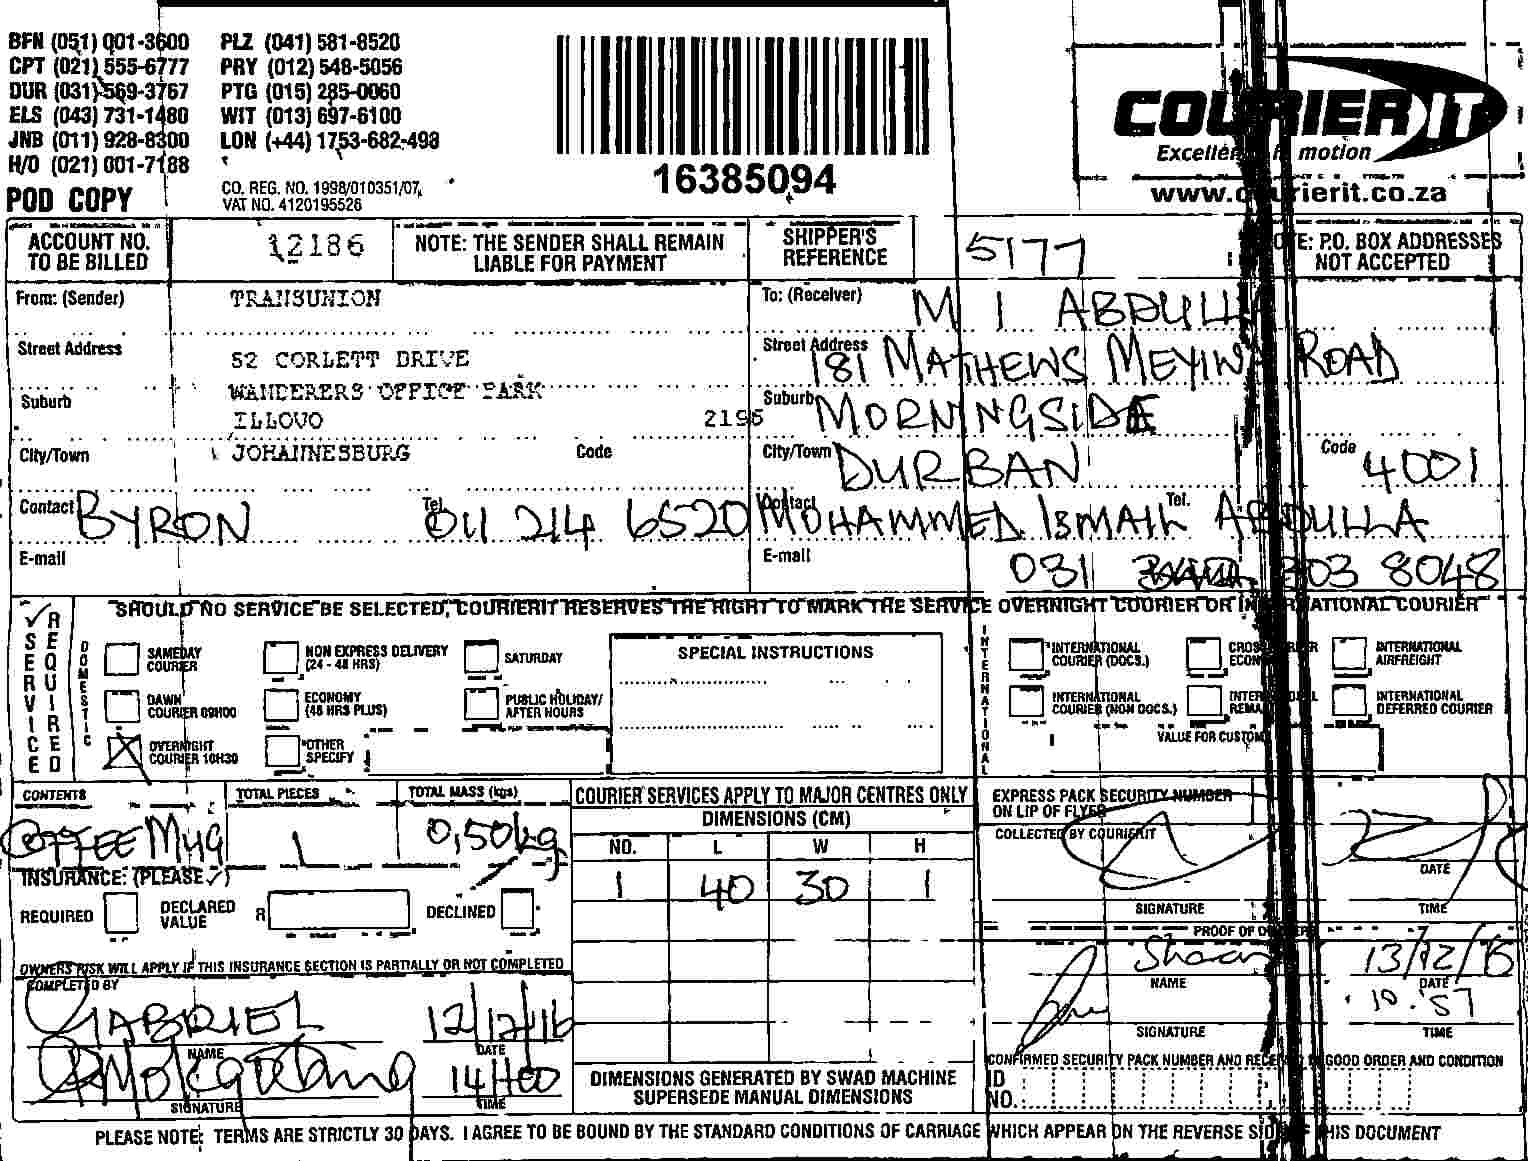 BFN (051) 001-3600 PLZ (041) 581-8520
CPT (021) 555-6777 PRY (012) 548-5056
DUR (031) 569-3767 PTG (015) 285-0060
ELS (043) 731-1480 WIT (013) 697-6100
JNB (011) 928-8300 LON (+44) 1753-682-498
H/O (021) 001-7188
POD COPY
CO. REG. NO. 1998/010351/07,
VAT NO. 4120195526
16385094
COURIER IT
Excellence in motion
www.courierit.co.za
ACCOUNT NO. TO BE BILLED 12186
NOTE: THE SENDER SHALL REMAIN LIABLE FOR PAYMENT
SHIPPER'S REFERENCE 5177
NOTE: P.O. BOX ADDRESSES NOT ACCEPTED
From: (Sender) TRANSUNION
Street Address 52 CORLETT DRIVE
WANDERERS OFFICE PARK
Suburb ILLOVO 2196
City/Town JOHANNESBURG Code
Contact BYRON Tel. 011 214 6520
E-mail
To: (Receiver) M I ABDULLA
Street Address 181 MATHEWS MEYIWA ROAD
Suburb MORNINGSIDE
City/Town DURBAN Code 4001
Contact MOHAMMED ISMAIL ABDULLA Tel.
E-mail 031 303 8048
SHOULD NO SERVICE BE SELECTED, COURIERIT RESERVES THE RIGHT TO MARK THE SERVICE OVERNIGHT COURIER OR INTERNATIONAL COURIER
✓ SERVICE REQUIRED
DOMESTIC
SAMEDAY COURIER
NON EXPRESS DELIVERY (24 - 48 HRS)
SATURDAY
DAWN COURIER 09H00
ECONOMY (48 HRS PLUS)
PUBLIC HOLIDAY/ AFTER HOURS
OVERNIGHT COURIER 10H30
OTHER SPECIFY
SPECIAL INSTRUCTIONS
INTERNATIONAL
INTERNATIONAL COURIER (DOCS.)
CROSS BORDER ECONOMY
INTERNATIONAL AIRFREIGHT
INTERNATIONAL COURIER (NON DOCS.)
INTERNATIONAL
INTERNATIONAL DEFERRED COURIER
VALUE FOR CUSTOMS
CONTENTS COFFEE MUG
TOTAL PIECES 1
TOTAL MASS (kgs) 0,50kg
INSURANCE: (PLEASE ✓)
REQUIRED DECLARED VALUE R DECLINED
OWNERS RISK WILL APPLY IF THIS INSURANCE SECTION IS PARTIALLY OR NOT COMPLETED
COMPLETED BY
GABRIEL 12/12/16
NAME DATE
14H00
SIGNATURE TIME
COURIER SERVICES APPLY TO MAJOR CENTRES ONLY
DIMENSIONS (CM)
NO. L W H
1 40 30 1
DIMENSIONS GENERATED BY SWAD MACHINE
SUPERSEDE MANUAL DIMENSIONS
EXPRESS PACK SECURITY NUMBER
ON LIP OF FLYER
COLLECTED BY COURIERIT
DATE
SIGNATURE TIME
PROOF OF DELIVERY
13/12/16
NAME DATE
10:57
SIGNATURE TIME
CONFIRMED SECURITY PACK NUMBER AND RECEIVED IN GOOD ORDER AND CONDITION
ID NO.
PLEASE NOTE: TERMS ARE STRICTLY 30 DAYS. I AGREE TO BE BOUND BY THE STANDARD CONDITIONS OF CARRIAGE WHICH APPEAR ON THE REVERSE SIDE OF THIS DOCUMENT